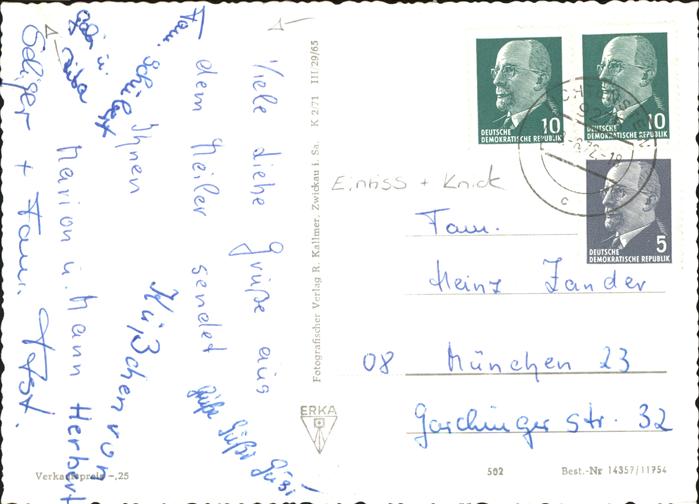 Viele liebe Grüße aus
dem Weiler sendet
Ihnen
Fam. Schubert
Küßchen von
Marion u. Mann Herbert
Seliger + Fam. Horst.
Grüße Grüße
Verkaufspreis -,25
ERKA
Fotografischer Verlag R. Kallmer, Zwickau i. Sa. K 2/71 III 29/65
10
DEUTSCHE
DEMOKRATISCHE REPUBLIK
10
DEUTSCHE
DEMOKRATISCHE REPUBLIK
5
DEUTSCHE
DEMOKRATISCHE REPUBLIK
c
Einriss + Knick
Fam.
Heinz Zander
08 München 23
Garchinger Str. 32
502
Best.-Nr 14357/11754